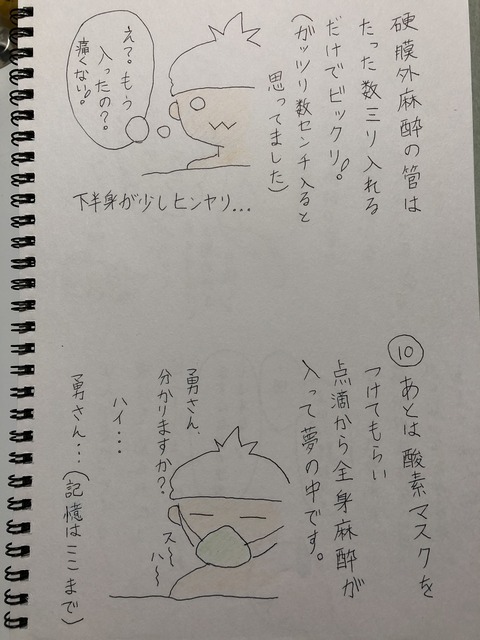 硬膜外麻酔の管は
たった数ミリ入れる
だけでビックリ!
(ガッツリ数センチ入ると
思ってました)
え?もう
入ったの?
痛くない!
下半身が少しヒンヤリ...
⑩あとは酸素マスクを
つけてもらい
点滴から全身麻酔が
入って夢の中です。
勇さん、
分かりますか?
ハイ...
スー
ハー
勇さん...(記憶はここまで)